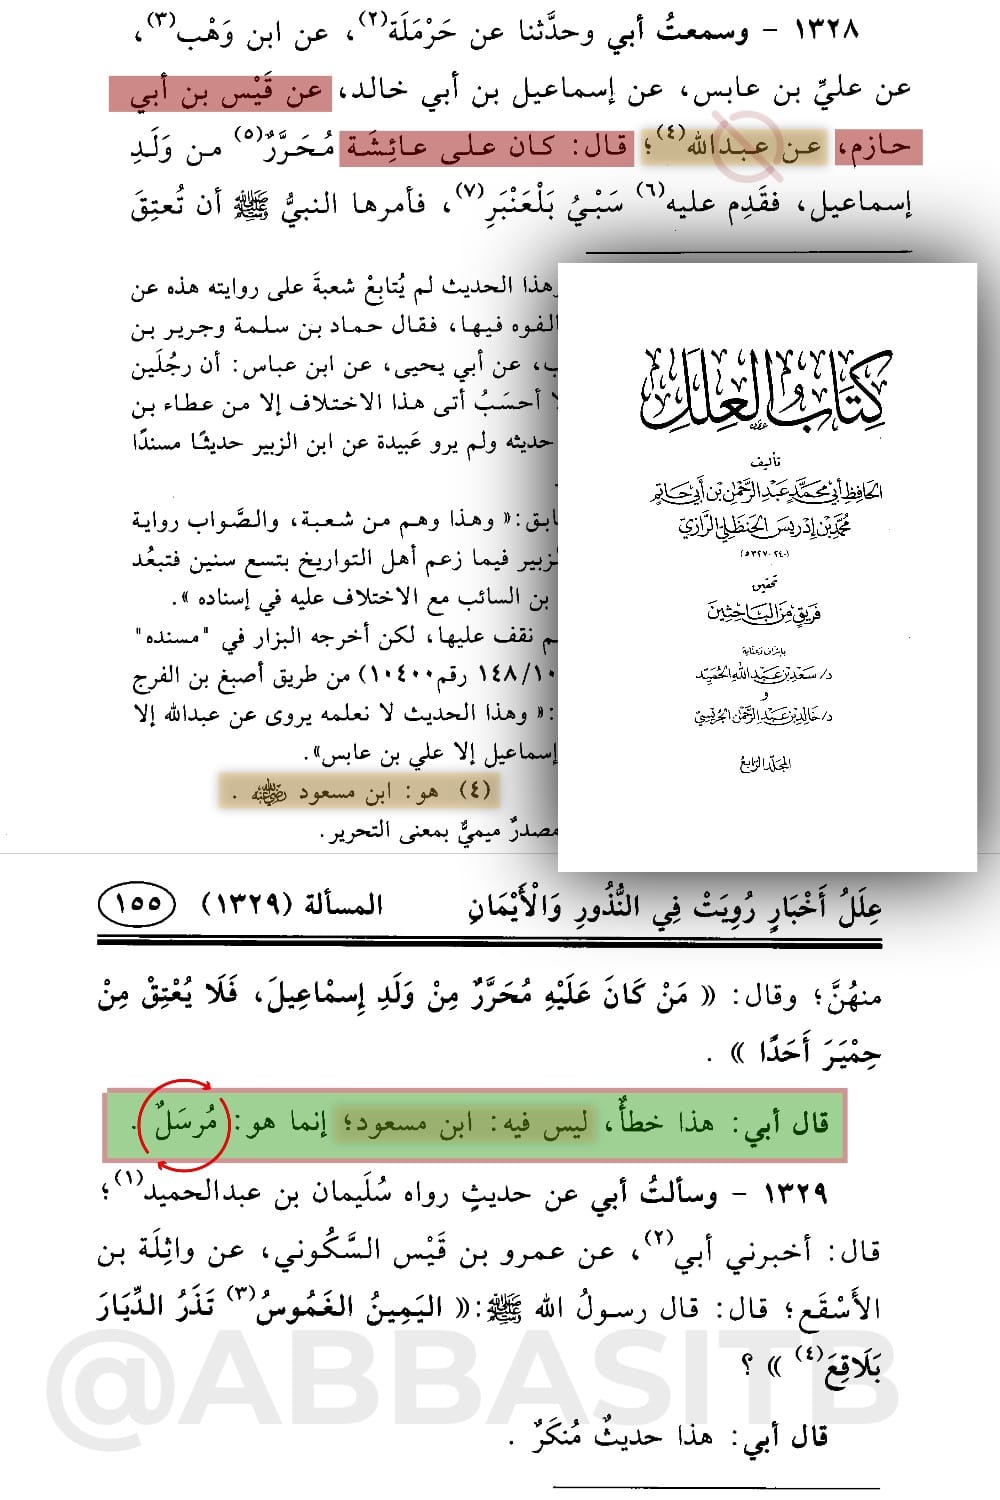 ١٣٢٨ - وسمعتُ أبي وحدَّثنا عن حَرْمَلَة(٢)، عن ابن وَهْب(٣)،
عن عليِّ بن عابس، عن إسماعيل بن أبي خالد، عن قَيْس بن أبي
حازم، عن عبدالله(٤)؛ قال: كان على عائِشَة مُحَرَّرٌ(٥) من وَلَدِ
إسماعيل، فقَدِم عليه(٦) سَبْيُ بَلْعَنْبَرِ(٧)، فأمرها النبيُّ ﷺ أن تُعتِقَ
وهذا الحديث لم يُتابَعْ شعبةَ على روايته هذه عن
الفوه فيها، فقال حماد بن سلمة وجرير بن
ب، عن أبي يحيى، عن ابن عباس: أن رجُلَين
لا أحسَبُ أتى هذا الاختلاف إلا من عطاء بن
حديثه ولم يرو عَبيدة عن ابن الزبير حديثًا مسندًا
ابق:« وهذا وهم من شعبة، والصَّواب رواية
لزبير فيما زعم أهل التواريخ بتسع سنين فتبعُد
بن السائب مع الاختلاف عليه في إسناده ».
م نقف عليها، لكن أخرجه البزار في "مسنده"
١٤٨/١٠ رقم١٠٤٠٠) من طريق أصبغ بن الفرج
:« وهذا الحديث لا نعلمه يروى عن عبدالله إلا
إسماعيل إلا علي بن عابس».
(٤) هو: ابن مسعود رضي الله عنه .
مصدرٌ ميميٌّ بمعنى التحرير.
كتاب العلل
تأليف
الحافظ أبي محمد عبد الرحمن بن أبي حاتم
محمد بن إدريس الحنظلي الرازي
(٢٤٠-٣٢٧ه)
تحقيق
فريق من الباحثين
بإشراف وعناية
د/ سعد بن عبد الله الحميد
و
د/ خالد بن عبد الرحمن الجريسي
المجلد الرابع
عِلَلُ أَخْبَارٍ رُوِيَتْ فِي النُّذُورِ وَالْأَيْمَانِ المسألة (١٣٢٩) ١٥٥
منهُنَّ؛ وقال: « مَنْ كَانَ عَلَيْهِ مُحَرَّرٌ مِنْ وَلَدِ إِسْمَاعِيلَ، فَلَا يُعْتِقْ مِنْ
حِمْيَرَ أَحَدًا » .
قال أبي: هذا خطأٌ، ليس فيه: ابن مسعود؛ إنما هو: مُرسَلٌ .
١٣٢٩ - وسألتُ أبي عن حديثٍ رواه سُلَيمان بن عبدالحميد(١)؛
قال: أخبرني أبي(٢)، عن عمرو بن قَيْس السَّكُوني، عن واثِلَة بن
الأَسْقَع؛ قال: قال رسولُ الله ﷺ:« اليَمِينُ الغَمُوسُ(٣) تَذَرُ الدِّيَارَ
بَلَاقِعَ(٤) » ؟
@ABBASITB
قال أبي: هذا حديثٌ مُنكَرٌ .